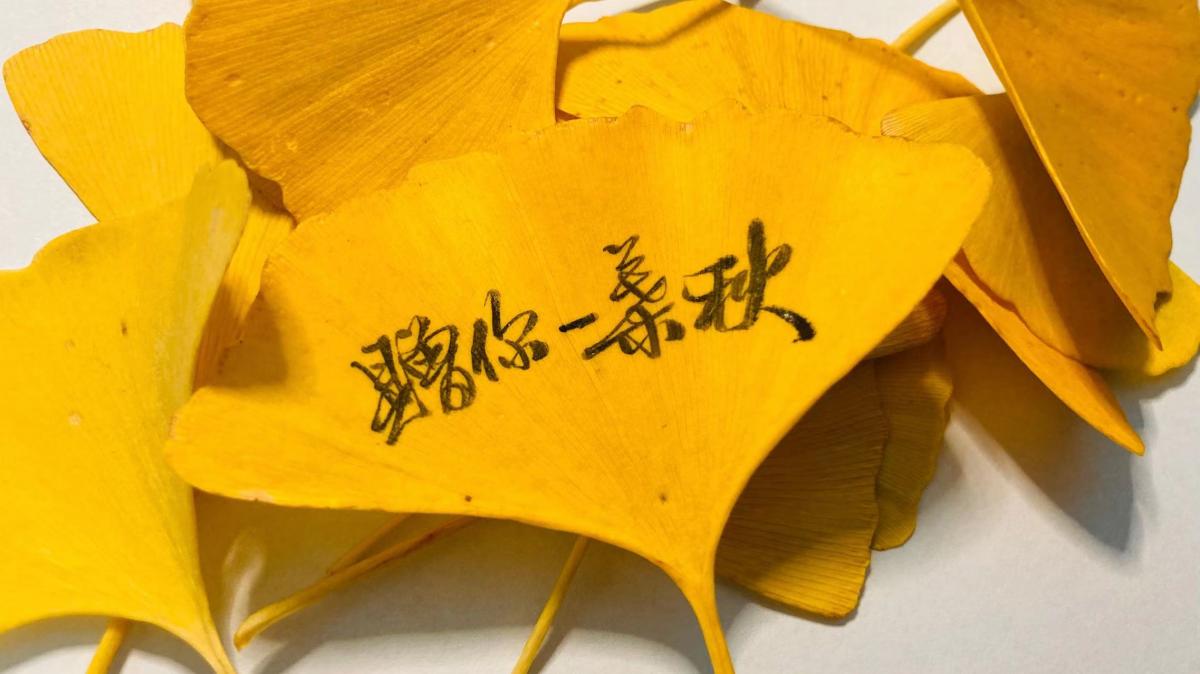 赠你一葉秋